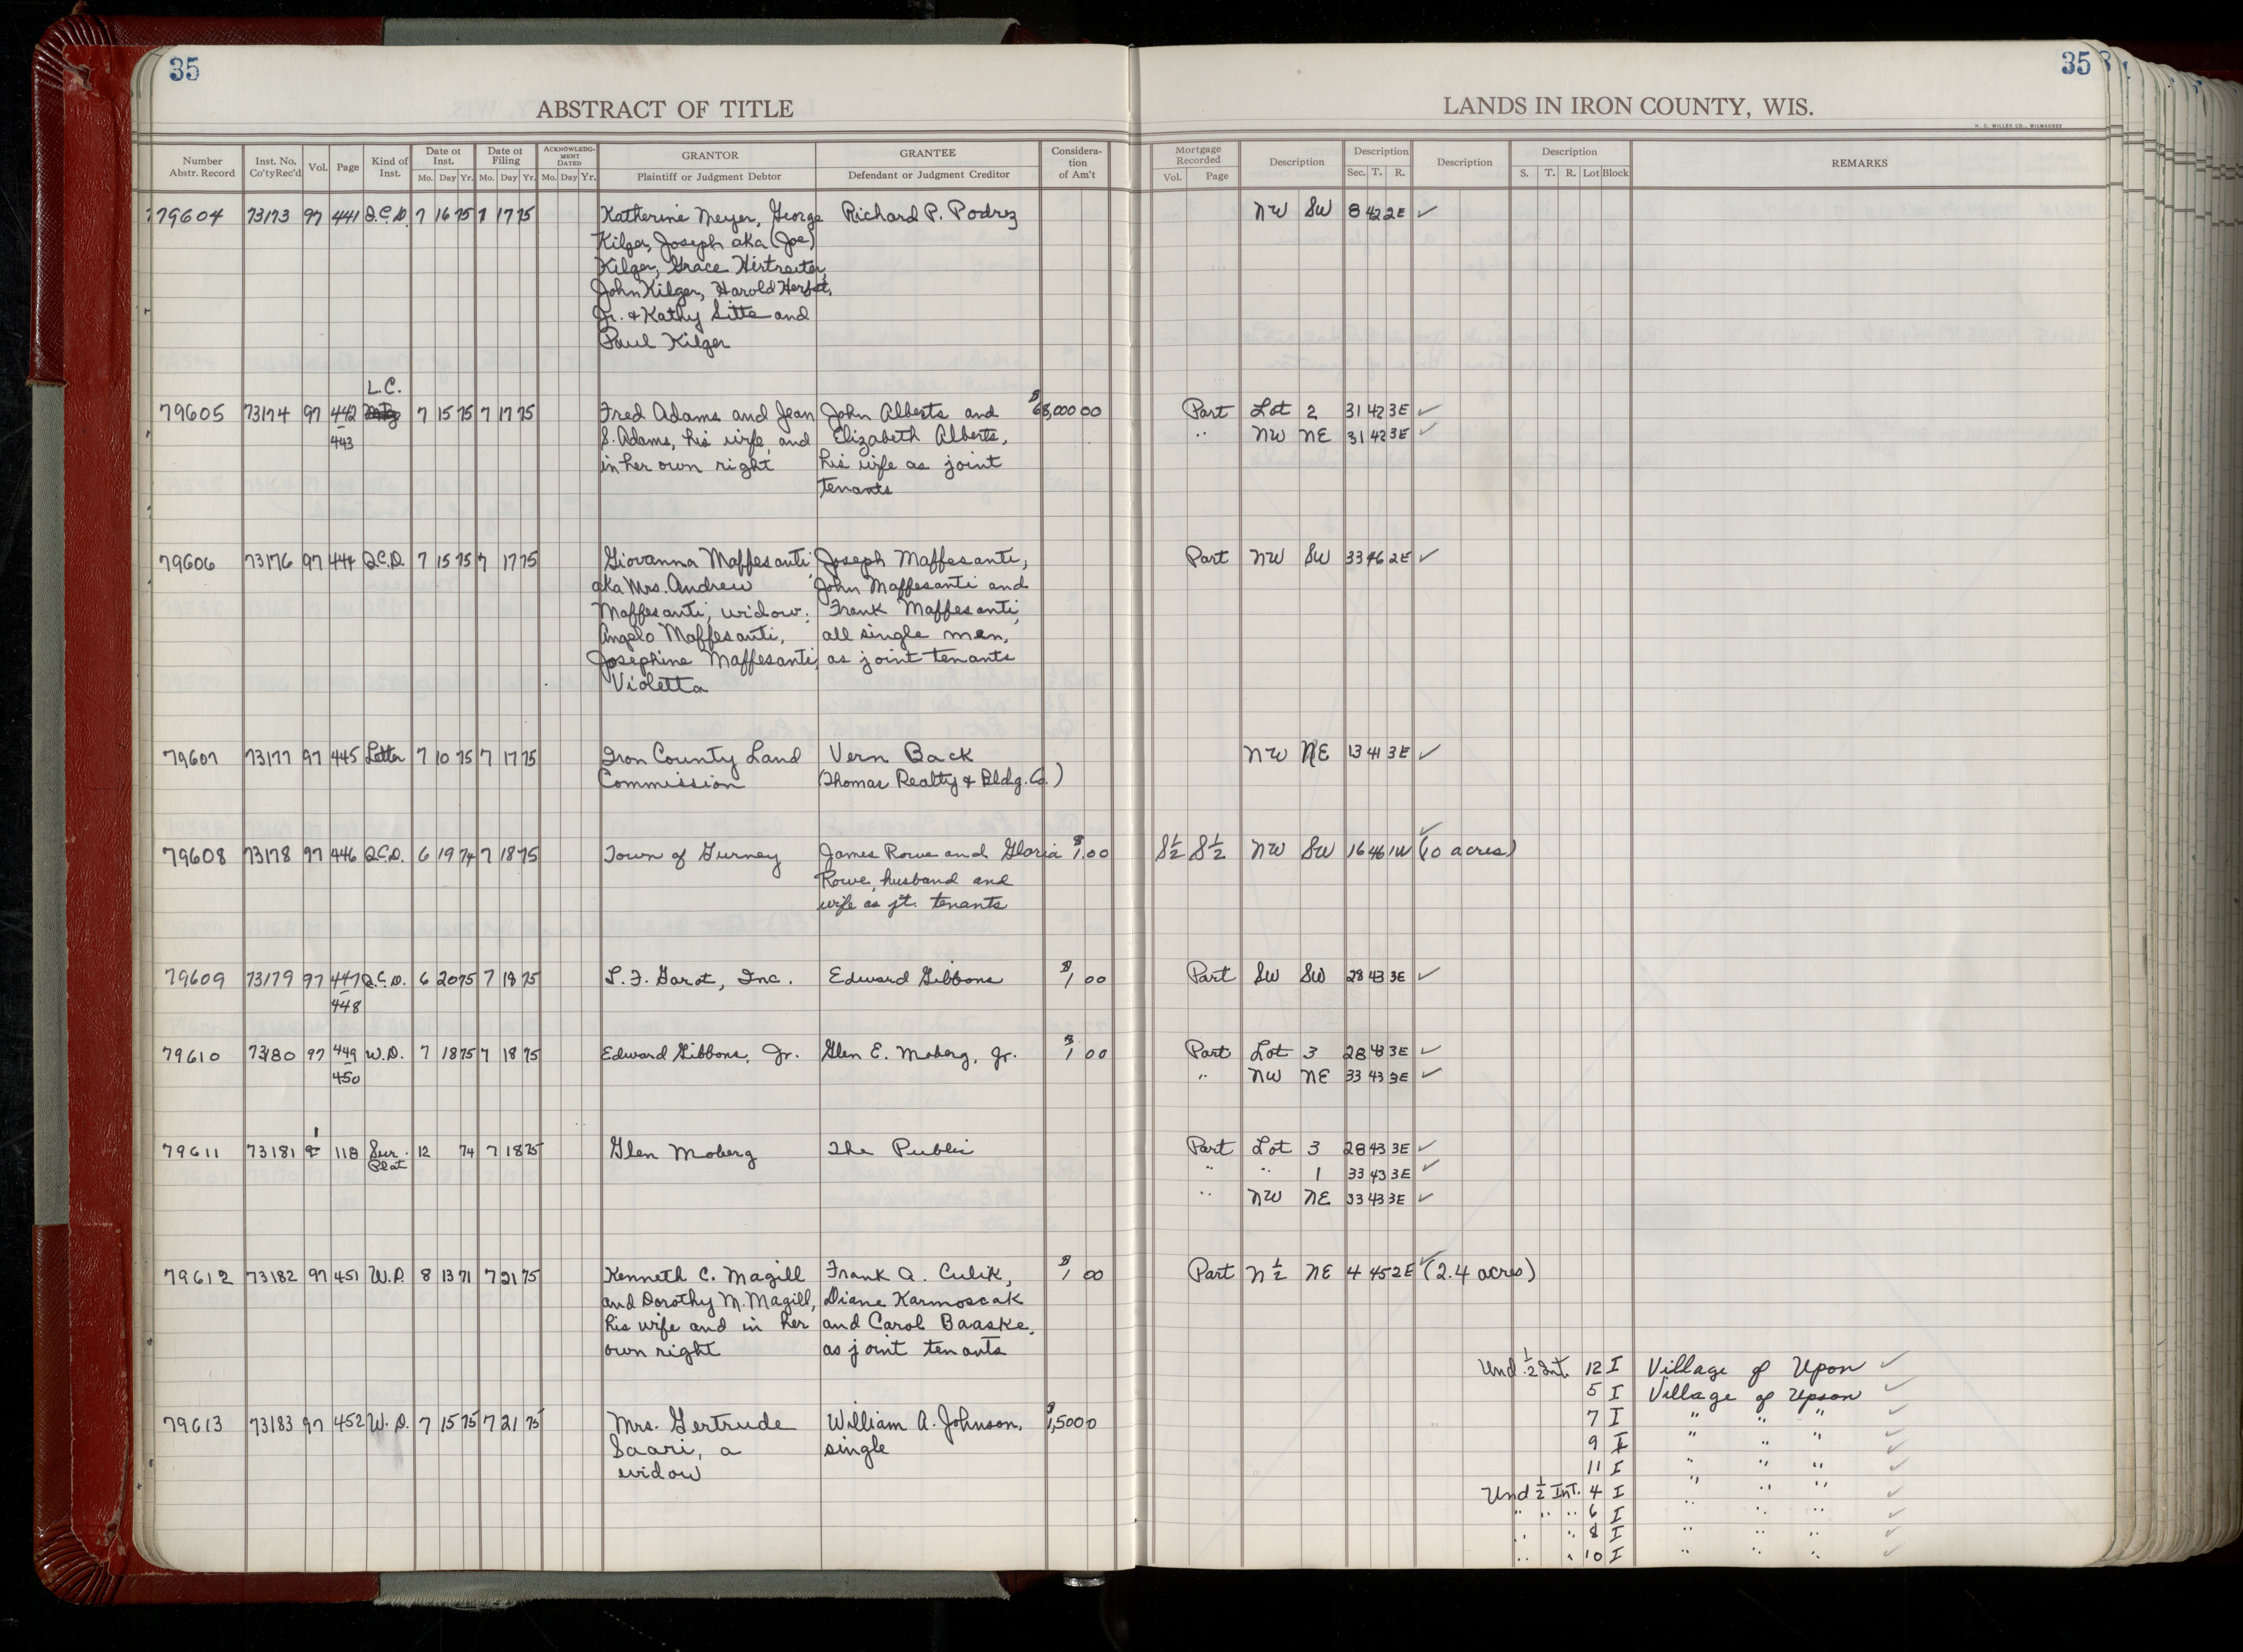 35
35
ABSTRACT OF TITLE
LANDS IN IRON COUNTY, WIS.
H. C. MILLER CO., MILWAUKEE
Number Abstr. Record Inst. No. Co'ty Rec'd Vol. Page Kind of Inst. Date of Inst. Mo. Day Yr. Date of Filing Mo. Day Yr. ACKNOWLEDGMENT DATED Mo. Day Yr. GRANTOR Plaintiff or Judgment Debtor GRANTEE Defendant or Judgment Creditor Consideration of Am't Mortgage Recorded Vol. Page Description Description Sec. T. R. Description Description S. T. R. Lot Block REMARKS
79604 73173 97 441 Q.C.D. 7 16 75 7 17 75 Katherine Meyer, George Richard P. Podrez NW SW 8 42 2E ✓
Kilger, Joseph aka (Joe)
Kilger, Grace Hirtreiter,
John Kilger, Harold Herbst,
Jr. & Kathy Sitte and
Paul Kilger
L.C.
79605 73174 97 442 7 15 75 7 17 75 Fred Adams and Jean John Alberts and $68,000 00 Part Lot 2 31 42 3E ✓
443 S. Adams, his wife, and Elizabeth Alberts, " NW NE 31 42 3E ✓
in her own right his wife as joint
tenants
79606 73176 97 444 Q.C.D. 7 15 75 7 17 75 Giovanna Maffesanti Joseph Maffesanti, Part NW SW 33 46 2E ✓
aka Mrs. Andrew John Maffesanti and
Maffesanti, widow; Frank Maffesanti,
Angelo Maffesanti, all single men,
Josephine Maffesanti as joint tenants
Violetta
79607 73177 97 445 Letter 7 10 75 7 17 75 Iron County Land Vern Back NW NE 13 41 3E ✓
Commission (Thomas Realty & Bldg. Co.)
79608 73178 97 446 Q.C.D. 6 19 74 7 18 75 Town of Gurney James Rowe and Gloria $1.00 S½ S½ NW SW 16 46 1W ✓ (10 acres)
Rowe, husband and
wife as jt. tenants
79609 73179 97 447 Q.C.D. 6 20 75 7 18 75 L. F. Garot, Inc. Edward Gibbons $1 00 Part SW SW 28 43 3E ✓
448
79610 73180 97 449 W.D. 7 18 75 7 18 75 Edward Gibbons, Jr. Glen E. Moberg, Jr. $1 00 Part Lot 3 28 43 3E ✓
450 " NW NE 33 43 3E ✓
1
79611 73181 118 Sur. 12 74 7 18 75 Glen Moberg The Public Part Lot 3 28 43 3E ✓
Plat " " 1 33 43 3E ✓
" NW NE 33 43 3E ✓
79612 73182 97 451 W.D. 8 13 71 7 21 75 Kenneth C. Magill Frank A. Culik, $1 00 Part N½ NE 4 45 2E ✓ (2.4 acres)
and Dorothy M. Magill, Diane Karmoscak
his wife and in her and Carol Baaske,
own right as joint tenants
Und. ½ Int. 12 I Village of Upon ✓
5 I Village of Upson ✓
79613 73183 97 452 W.D. 7 15 75 7 21 75 Mrs. Gertrude William A. Johnson, $1,500 0 7 I " " " ✓
Saari, a single 9 I " " " ✓
widow 11 I " " " ✓
Und ½ Int. 4 I " " " ✓
" " " 6 I " " " ✓
" " 8 I " " " ✓
" " 10 I " " " ✓